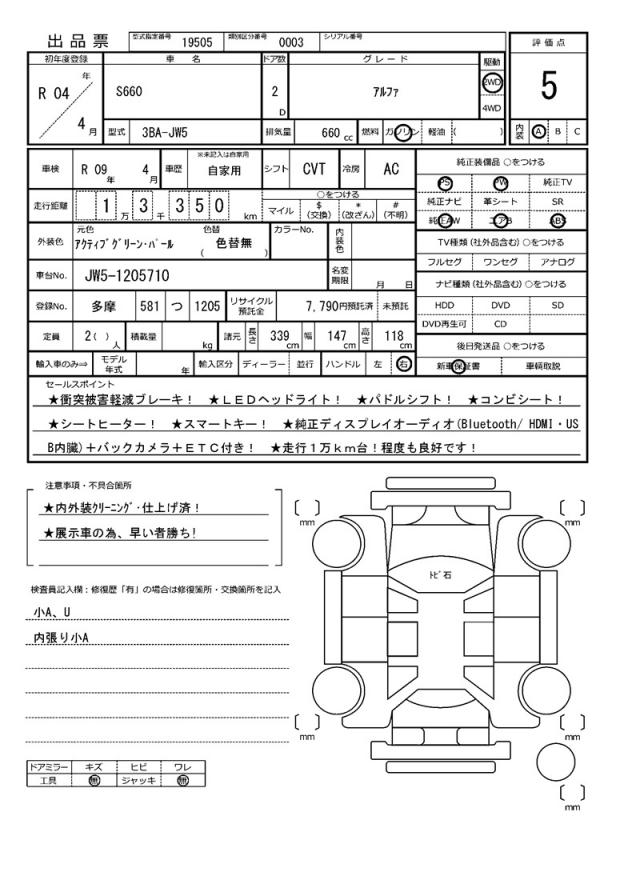 出品票 型式指定番号 19505 類別区分番号 0003 シリアル番号
評価点
5
内装 A B C
初年度登録 車名 ドア数 グレード 駆動
R 04 年 4 月 S660 2 D アルファ 2WD 4WD
型式 3BA-JW5 排気量 660 cc 燃料 ガソリン 軽油 ( )
車検 R 09 年 4 月 車歴 ※未記入は自家用 自家用 シフト CVT 冷房 AC
走行距離 1 万 3 千 3 5 0 km ○をつける
マイル $ (交換) * (改ざん) # (不明)
外装色 元色 アクティブグリーン・パール 色替 ( 色替無 ) カラーNo. 内装色
車台No. JW5-1205710 名変期限 月 日
登録No. 多摩 581 つ 1205 リサイクル預託金 7,790円預託済 未預託
定員 2( ) 人 積載量 kg 諸元 長さ 339 cm 幅 147 cm 高さ 118 cm
輸入車のみ⇒ モデル年式 年 輸入区分 ディーラー 並行 ハンドル 左 右
純正装備品 ○をつける
PS PW 純正TV
純正ナビ 革シート SR
純正AW エアB ABS
TV種類 (社外品含む) ○をつける
フルセグ ワンセグ アナログ
ナビ種類 (社外品含む) ○をつける
HDD DVD SD
DVD再生可 CD
後日発送品 ○をつける
新車保証書 車輌取説
セールスポイント
★衝突被害軽減ブレーキ! ★LEDヘッドライト! ★パドルシフト! ★コンビシート!
★シートヒーター! ★スマートキー! ★純正ディスプレイオーディオ(Bluetooth/ HDMI・US
B内臓)+バックカメラ+ETC付き! ★走行1万km台!程度も良好です!
注意事項・不具合箇所
★内外装クリーニング・仕上げ済!
★展示車の為、早い者勝ち!
検査員記入欄:修復歴「有」の場合は修復箇所・交換箇所を記入
小A、U
内張り小A
ドアミラー キズ ヒビ ワレ
工具 無 ジャッキ 無
〔 〕 mm
〔 〕 mm
トビ石
〔 〕 mm
〔 〕 mm
〔 〕 mm